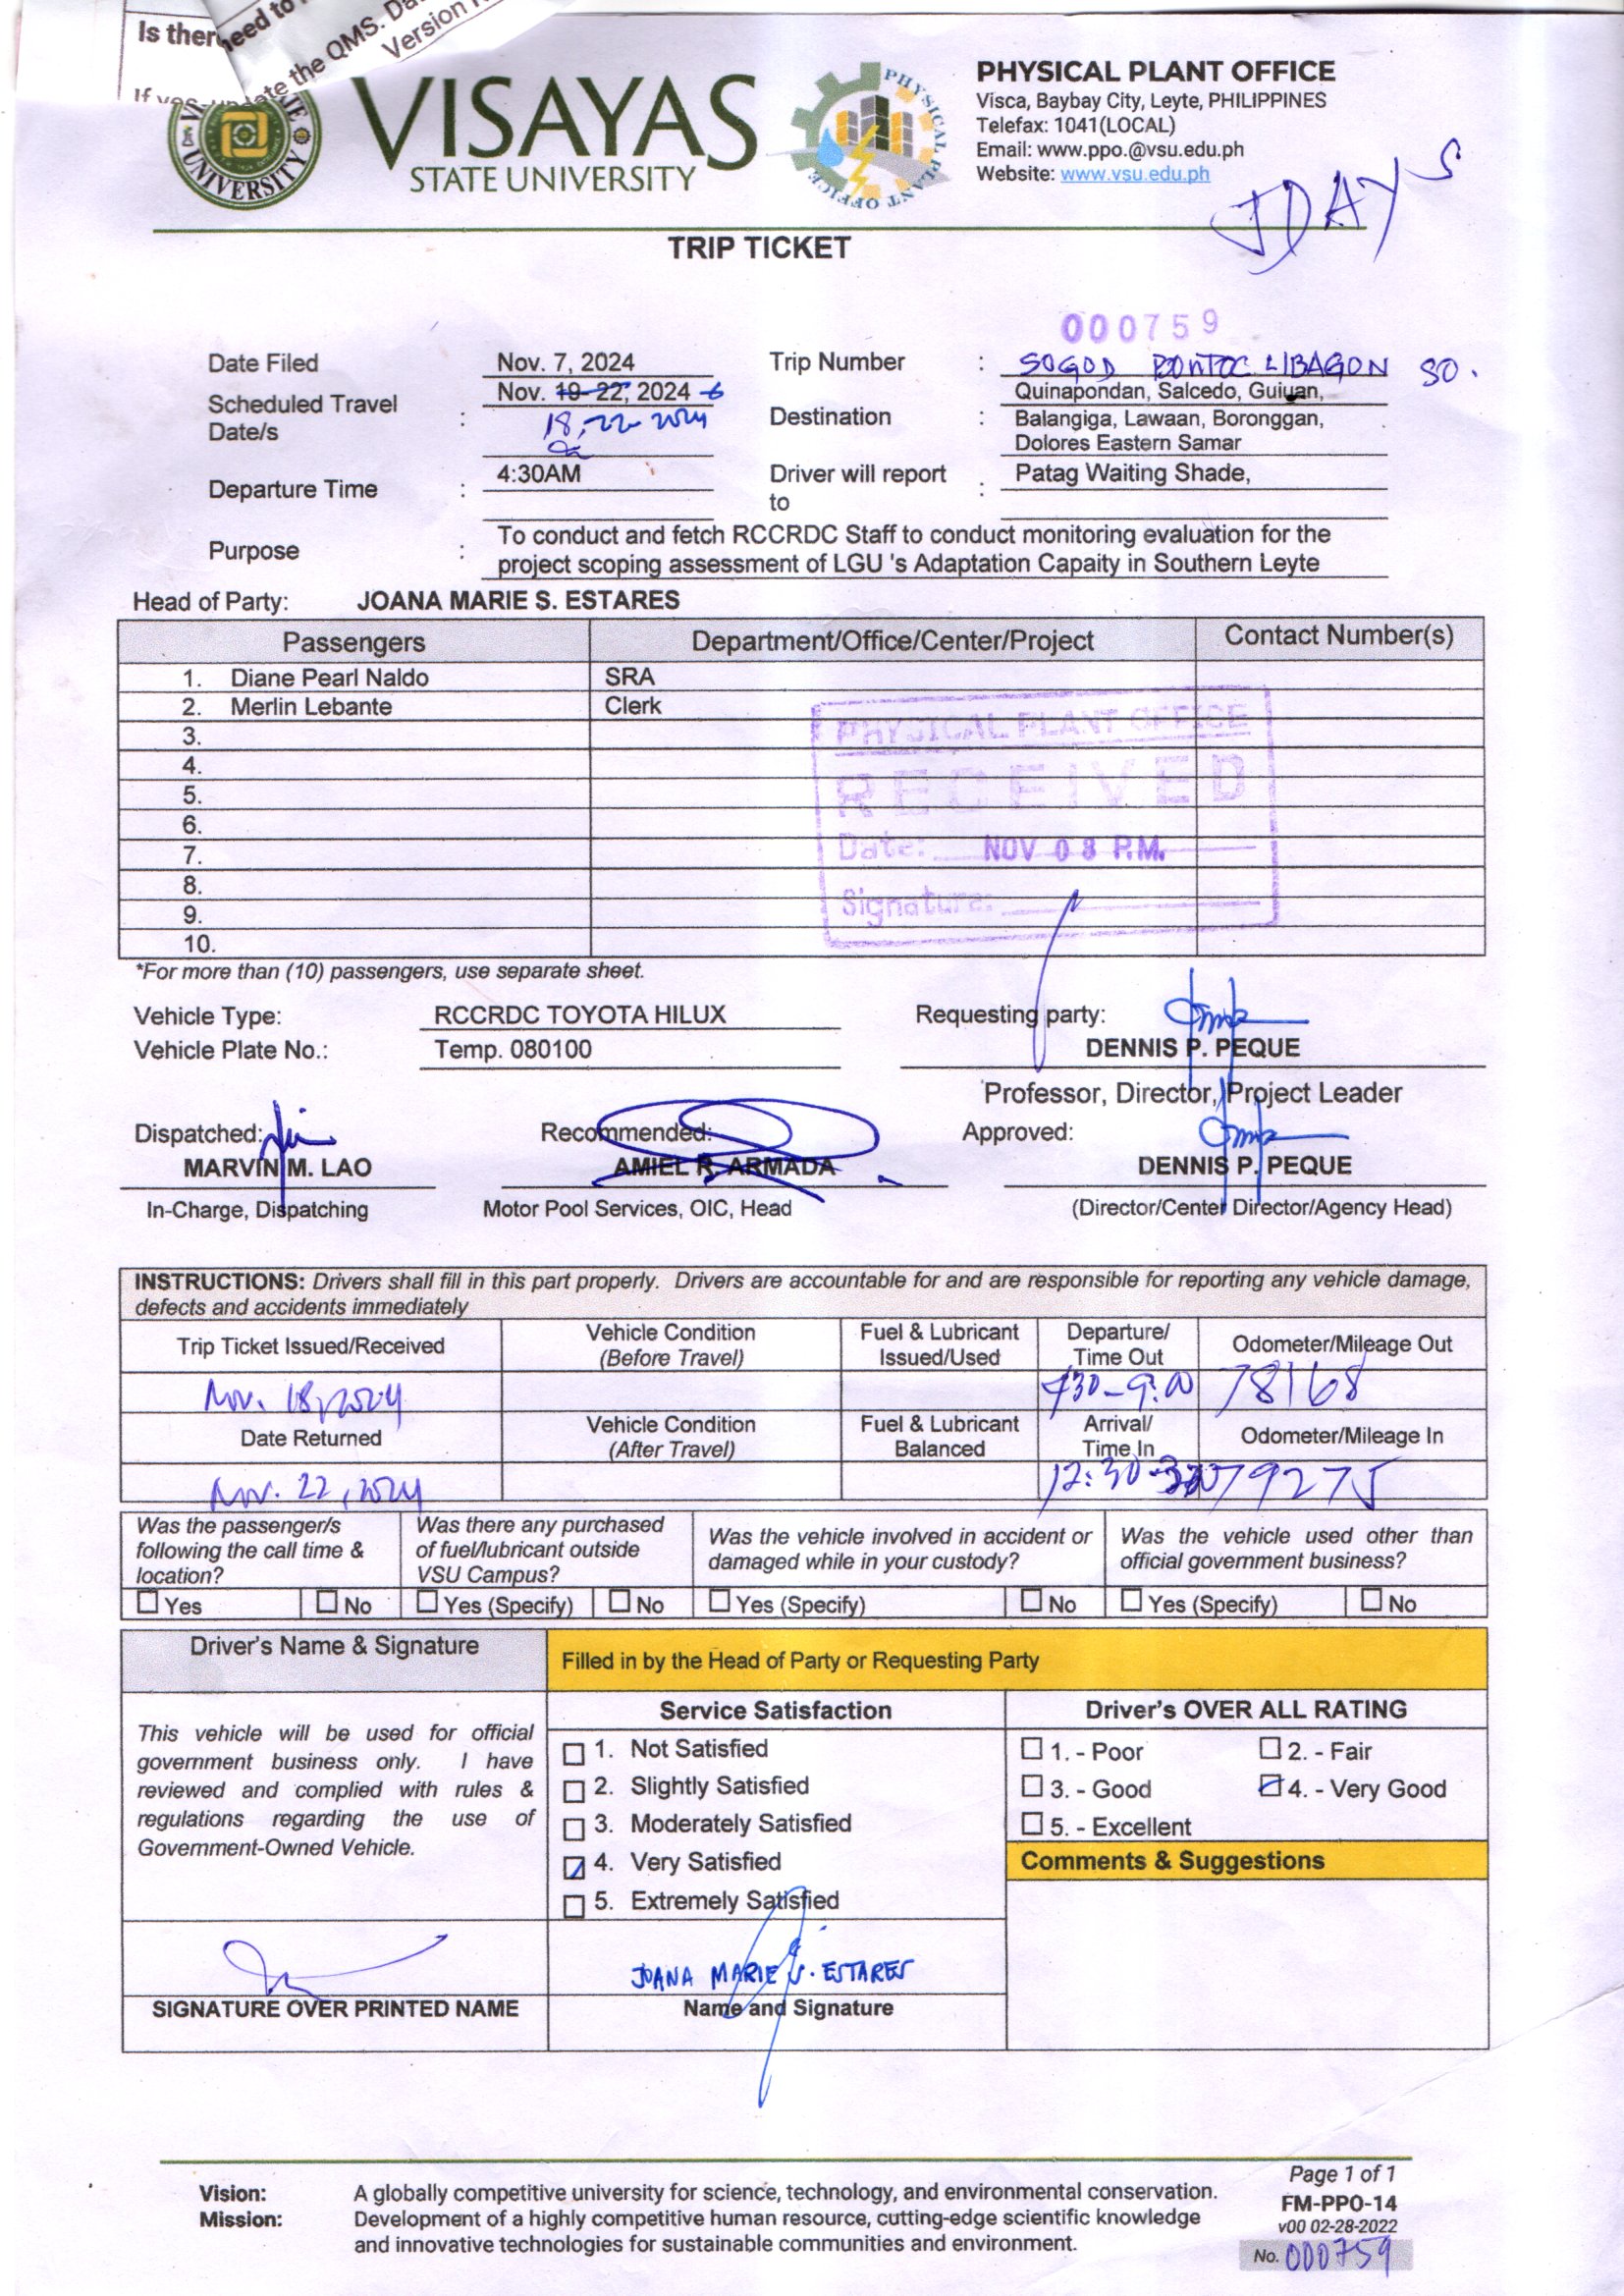 Is ther
need to
If yes, update the QMS. Da
Version
VISAYAS
STATE UNIVERSITY
UNIVERSITY
PHYSICAL PLANT OFFICE
PHYSICAL PLANT OFFICE
Visca, Baybay City, Leyte, PHILIPPINES
Telefax: 1041(LOCAL)
Email: www.ppo.@vsu.edu.ph
Website: www.vsu.edu.ph
JDAYS
TRIP TICKET
000759
Date Filed Nov. 7, 2024 Trip Number : SOGOD BONTOC LIBAGON SO.
Scheduled Travel Date/s : Nov. 19-22, 2024
18, -22- 2024
Destination : Quinapondan, Salcedo, Guiuan,
Balangiga, Lawaan, Boronggan,
Dolores Eastern Samar
Departure Time : 4:30AM Driver will report to : Patag Waiting Shade,
Purpose : To conduct and fetch RCCRDC Staff to conduct monitoring evaluation for the
project scoping assessment of LGU 's Adaptation Capaity in Southern Leyte
Head of Party: JOANA MARIE S. ESTARES
Passengers Department/Office/Center/Project Contact Number(s)
1. Diane Pearl Naldo SRA
2. Merlin Lebante Clerk
3.
4.
5.
6.
7.
8.
9.
10.
PHYSICAL PLANT OFFICE
RECEIVED
Date: NOV 08 P.M.
Signature:
*For more than (10) passengers, use separate sheet.
Vehicle Type: RCCRDC TOYOTA HILUX Requesting party:
Vehicle Plate No.: Temp. 080100 DENNIS P. PEQUE
Professor, Director, Project Leader
Dispatched: Recommended: Approved:
MARVIN M. LAO AMIEL R. ARMADA DENNIS P. PEQUE
In-Charge, Dispatching Motor Pool Services, OIC, Head (Director/Center Director/Agency Head)
INSTRUCTIONS: Drivers shall fill in this part properly. Drivers are accountable for and are responsible for reporting any vehicle damage,
defects and accidents immediately
Trip Ticket Issued/Received Vehicle Condition (Before Travel) Fuel & Lubricant Issued/Used Departure/ Time Out Odometer/Mileage Out
Nov. 18, 2024 430-9:00 78168
Date Returned Vehicle Condition (After Travel) Fuel & Lubricant Balanced Arrival/ Time In Odometer/Mileage In
Nov. 22, 2024 12:30 79275
Was the passenger/s following the call time & location?
Was there any purchased of fuel/lubricant outside VSU Campus?
Was the vehicle involved in accident or damaged while in your custody?
Was the vehicle used other than official government business?
Yes No Yes (Specify) No Yes (Specify) No Yes (Specify) No
Driver's Name & Signature Filled in by the Head of Party or Requesting Party
This vehicle will be used for official
government business only. I have
reviewed and complied with rules &
regulations regarding the use of
Government-Owned Vehicle.
SIGNATURE OVER PRINTED NAME
Service Satisfaction
1. Not Satisfied
2. Slightly Satisfied
3. Moderately Satisfied
4. Very Satisfied
5. Extremely Satisfied
JOANA MARIE S. ESTARES
Name and Signature
Driver's OVER ALL RATING
1. - Poor 2. - Fair
3. - Good 4. - Very Good
5. - Excellent
Comments & Suggestions
Vision: A globally competitive university for science, technology, and environmental conservation.
Mission: Development of a highly competitive human resource, cutting-edge scientific knowledge
and innovative technologies for sustainable communities and environment.
Page 1 of 1
FM-PPO-14
v00 02-28-2022
No. 000759